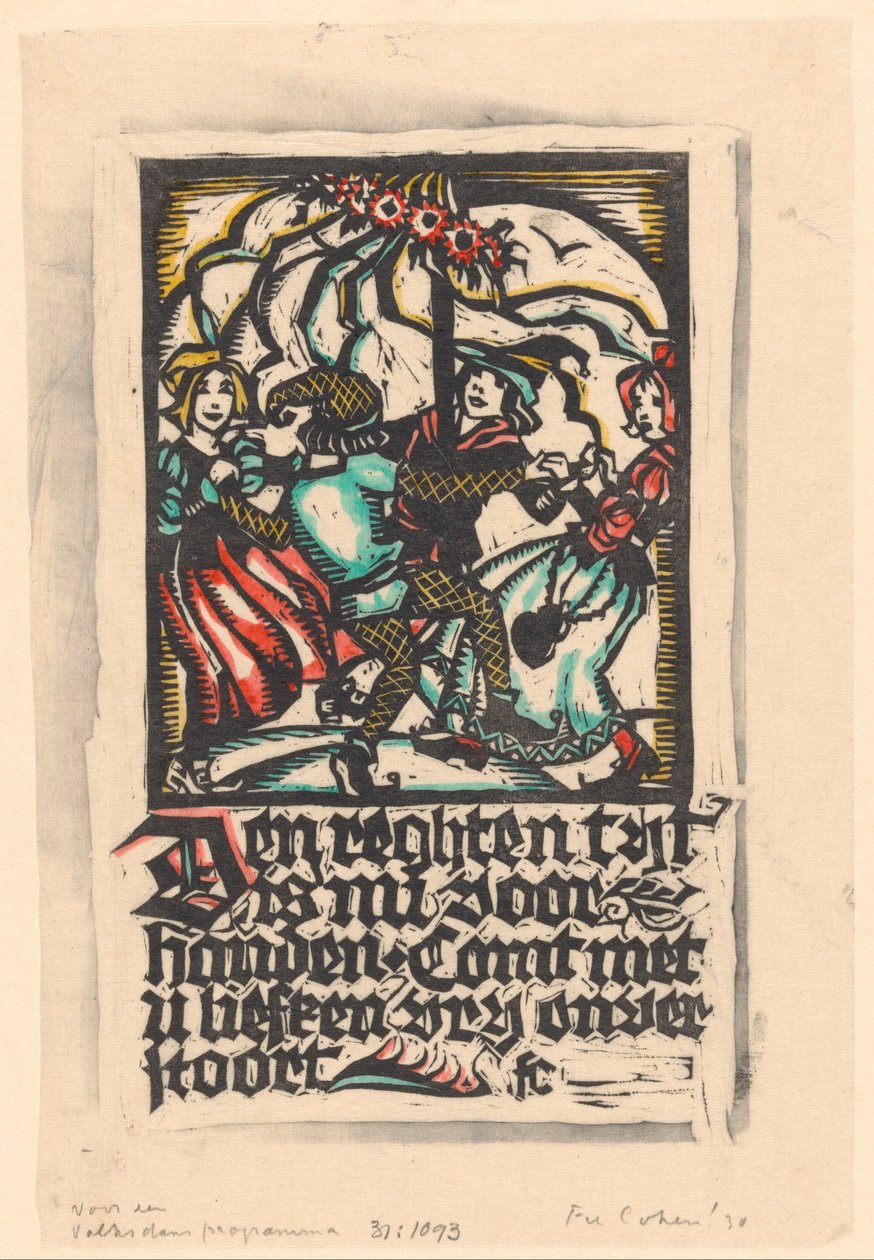 Den reghten tyt
is nu voor
handen · Comt met
u liefken vry onver
stoort fc
voor een
Volksdans programma 31:1093 Fré Cohen '30